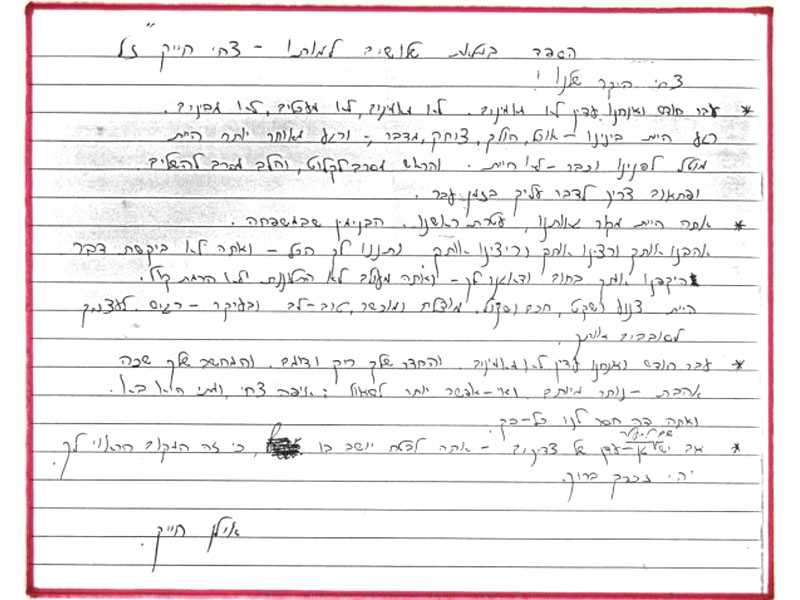 הספד במלאת שלושים למותו - צחי חייק ז"ל
צחי היקר שלנו!
* עבר חודש ואנחנו עדין לא מאמינים. לא מאמינים, לא מעכלים, לא מבינים.
רגע היית בינינו - אוכל, הולך, צוחק, מדבר, ורגע מאוחר יותר היית
מוטל לפנינו וכבר - לא חיית. והראש מסרב לקלוט, והלב מסרב להשלים.
ופתאום צריך לדבר עליך בזמן עבר.
* אתה היית מקור גאותנו, עטרת ראשנו. הבנימין שבמשפחה.
אהבנו אותך ורצינו אותך וריצינו אותך ונתננו לך הכל - ואתה לא ביקשת דבר
הקפנו אותך בחום ודאגנו לך - ואתה מעולם לא התלוננת ולא הרמת קול.
היית צנוע ושקט, חכם ושקול, מוצלח ומוכשר, טוב-לב ובעיקר - רגיש לעצמך
לסובבים אותך.
* עבר חודש ואנחנו עדין לא מאמינים. והחדר שלך ריק ודומם. והמחשב שלך שכה
אהבת - נותר מיותם ואי-אפשר יותר לשאול: איפה צחי, ומתי הוא בא.
ואתה כה חסר לנו כל-כך.
* אם יש גן-עדן של צדיקים - אתה לבטח יושב בו, כי זה המקום הראוי לך.
יהי זכרך ברוך.
אילן חייק.